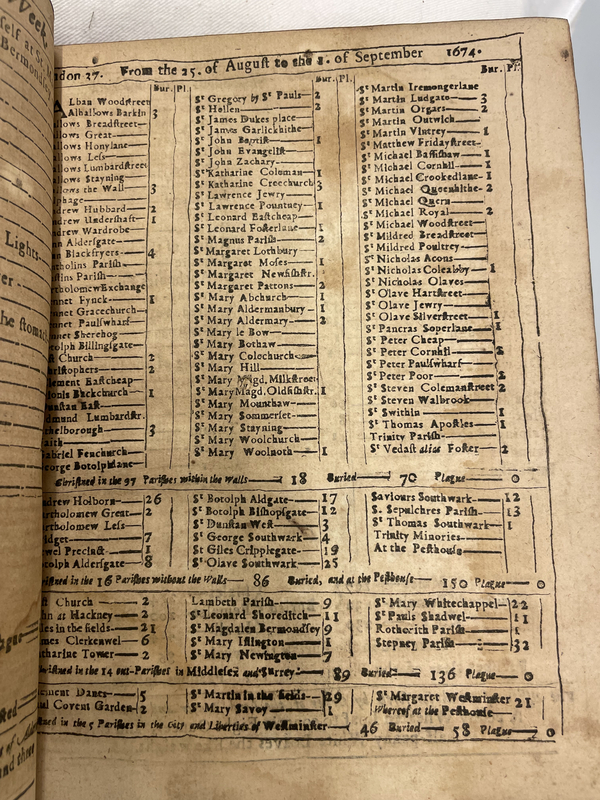 Week,
self at St.
Bermondsey
Lights-
ver -
he stomac
don 27. From the 25. of August to the 1. of September 1674.
Bur. Pl. Bur. Pl. Bur. Pl.
Lban Woodstreet
Alhallows Barkin 3
allows Breadstreet
allows Great
allows Honylane
allows Less
allows Lumbardstreet
allows Stayning
allows the Wall 3
phage
drew Hubbard 2
drew Undershaft 1
drew Wardrobe
n Aldersgate
n Blackfryers 4
tholins Parish
stins Parish
artholomewExchange
nnet Fynck 1
nnet Gracechurch
nnet Paulswharf
nnet Sherehog
tolph Billingsgate
st Church 2
hristophers 2
lement Eastcheap
ionis Backchurch 1
unstan East
dmund Lumbardstr.
thelborough 3
aith
abriel Fenchurch
George Botolphlane
St Gregory by St Pauls 2
St Hellen 2
St James Dukes place
St James Garlickhithe
St John Baptist 1
St John Evangelist
St John Zachary
St Katharine Coleman 1
St Katharine Creechurch 3
St Lawrence Jewry
St Lawrence Pountney 1
St Leonard Eastcheap
St Leonard Fosterlane 1
St Magnus Parish 2
St Margaret Lothbury
St Margaret Moses 1
St Margaret Newfishstr.
St Margaret Pattons 2
St Mary Abchurch 1
St Mary Aldermanbury 1
St Mary Aldermary 2
St Mary le Bow
St Mary Bothaw
St Mary Colechurch
St Mary Hill
St Mary Magd. Milkstreet
St Mary Magd. Oldfishstr. 1
St Mary Mounthaw
St Mary Sommerset
St Mary Stayning
St Mary Woolchurch
St Mary Woolnoth 1
St Martin Iremongerlane
St Martin Ludgate 3
St Martin Orgars 2
St Martin Outwich
St Martin Vintrey 1
St Matthew Fridaystreet
St Michael Bassishaw 1
St Michael Cornhil 1
St Michael Crookedlane 1
St Michael Queenhithe 2
St Michael Quern
St Michael Royal 2
St Michael Woodstreet
St Mildred Breadstreet
St Mildred Poultrey
St Nicholas Acons
St Nicholas Coleabby 1
St Nicholas Olaves
St Olave Hartstreet
St Olave Jewry
St Olave Silverstreet 1
St Pancras Soperlane 1
St Peter Cheap
St Peter Cornhil 2
St Peter Paulswharf
St Peter Poor 2
St Steven Colemanstreet 2
St Steven Walbrook
St Swithin 1
St Thomas Apostles 1
Trinity Parish
St Vedast alias Foster 2
Christned in the 97 Parishes within the Walls 18 Buried 70 Plague 0
ndrew Holborn 26
artholomew Great 2
artholomew Less
idget 7
wel Precinct 1
tolph Aldersgate 8
St Botolph Aldgate 17
St Botolph Bishopsgate 12
St Dunstan West 3
St George Southwark 4
St Giles Cripplegate 19
St Olave Southwark 25
Saviours Southwark 12
S. Sepulchres Parish 13
St Thomas Southwark 1
Trinity Minories
At the Pesthouse
ristned in the 16 Parishes without the Walls 86 Buried, and at the Pesthouse 150 Plague 0
st Church 2
hn at Hackney 2
iles in the fields 21
mes Clerkenwel 6
atharine Tower 2
Lambeth Parish 9
St Leonard Shoreditch 11
St Magdalen Bermondsey 9
St Mary Islington 1
St Mary Newington 7
St Mary Whitechappel 22
St Pauls Shadwel 11
Rothorith Parish 1
Stepney Parish 32
hristned in the 14 out-Parishes in Middlesex and Surrey 89 Buried 136 Plague 0
ement Danes 5
ul Covent Garden 2
St Martin in the fields 29
St Mary Savoy 1
St Margaret Westminster 21
Whereof at the Pesthouse
stned in the 5 Parishes in the City and Liberties of Westminster 46 Buried 58 Plague 0